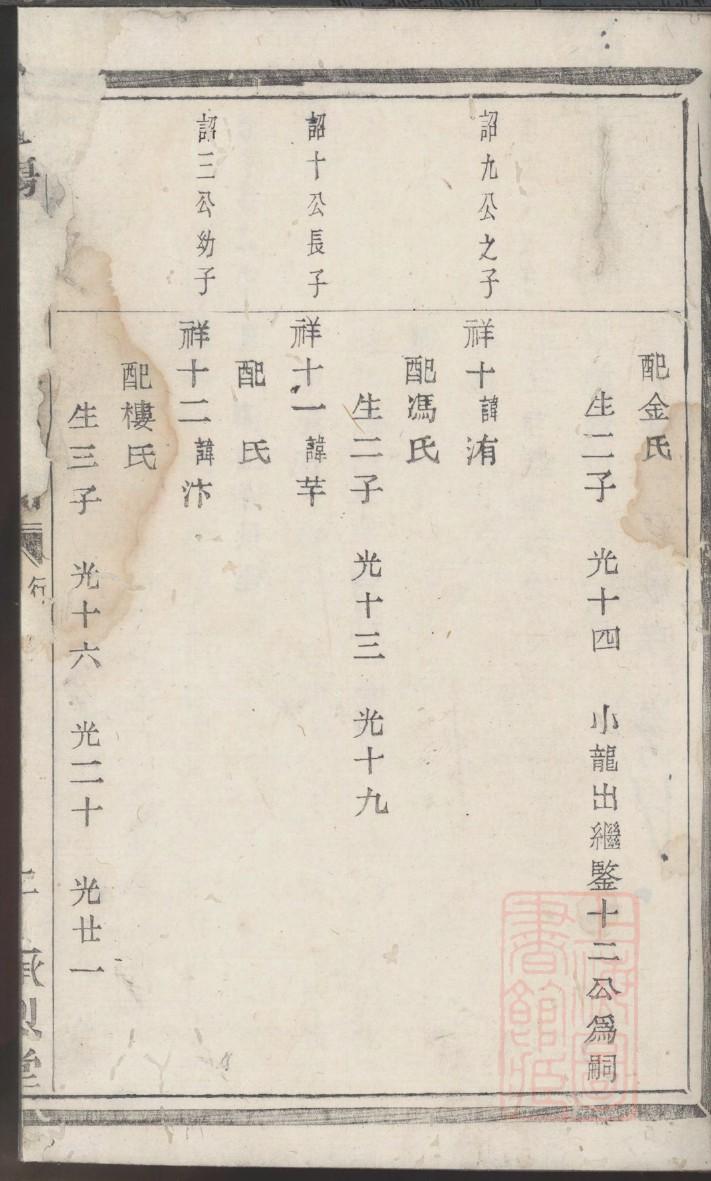 配金氏
生二子　光十四　小龍出繼鑒十二公為嗣
詔九公之子
祥十諱洧
配馮氏
生二子　光十三　光十九
詔十公長子
祥十一諱芊
配　氏
詔三公幼子
祥十二諱汴
配樓氏
生三子　光十六　光二十　光廿一
行
承烈堂